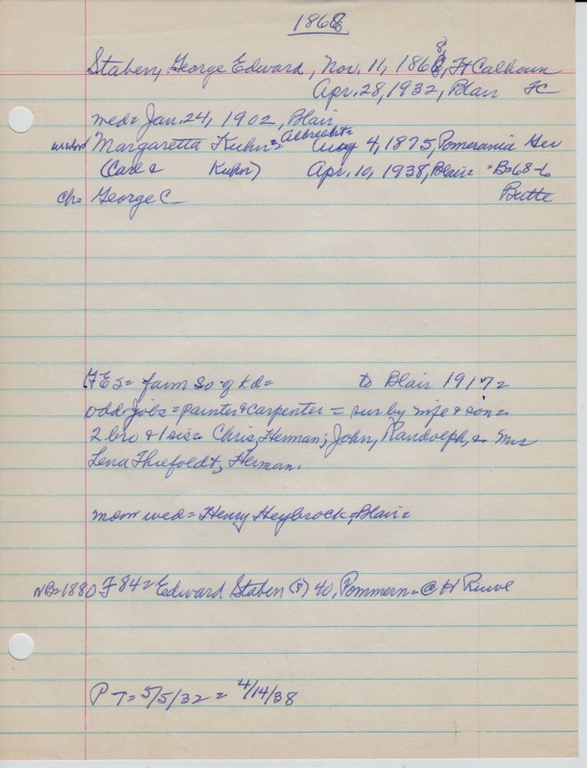 1868
Staben, George Edward, Nov. 11, 1868, Ft Calhoun
Apr. 28, 1932, Blair FC
wed= Jan. 24, 1902, Blair
Margaretta Kuhn= Albrecht= May 4, 1875, Pomerania Ger
(Carl & Kuhn) Apr. 10, 1938, Blair= B68-6
ch= George C Butte
GES= farm so of Kd= to Blair 1917=
odd jobs= painter & carpenter = sur by wife & son=
2 bro & 1 sis= Chris, Herman; John, Randolph, & Mrs
Lena Thiefoldt, Herman.
mom wed= Henry Heybrock, Blair=
NB=1880 F 84= Edward Staben (?) 40, Pommern= @ H
PT= 5/5/32 = 4/14/38